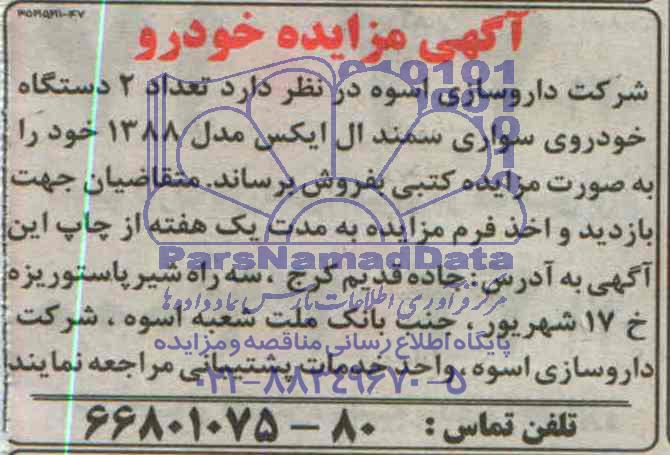 آگهی مزایده خودرو
شرکت داروسازی اسوه در نظر دارد تعداد ۲ دستگاه
خودروی سواری سمند ال ایکس مدل ۱۳۸۸ خود را
به صورت مزایده کتبی بفروش برساند. متقاضیان جهت
بازدید و اخذ فرم مزایده به مدت یک هفته از چاپ این
ParsNamadData
آگهی به آدرس: جاده قدیم کرج ، سه راه شیر پاستوریزه
مرکز فرآوری اطلاعات پارس نماد داده ها
خ ۱۷ شهریور ، جنب بانک ملت شعبه اسوه ، شرکت
پایگاه اطلاع رسانی مناقصه و مزایده
داروسازی اسوه ، واحد خدمات پشتیبانی مراجعه نمایند
۰۲۱-۸۸۳۴۹۶۷۰-۵
تلفن تماس : ۸۰ - ۶۶۸۰۱۰۷۵